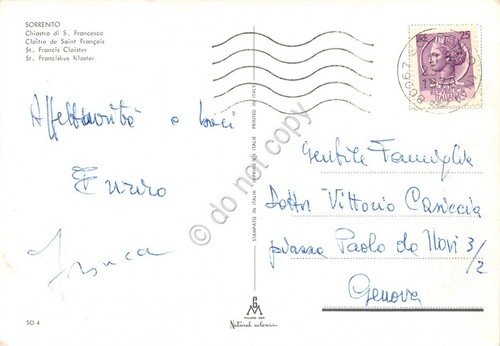 SORRENTO
Chiostro di S. Francesco
Cloître de Saint François
St. Francis Cloister
St. Franziskus Kloster
25
80067
Affettuosità e baci
Gentile Famiglia
Dott. Vittorio Casiccia
piazza Paolo da Novi 3/2
Genova
STAMPATO IN ITALIA - IMPRIMÉ EN ITALIE - PRINTED IN ITALY
do not copy
MILANO
Natural colours
SO 4